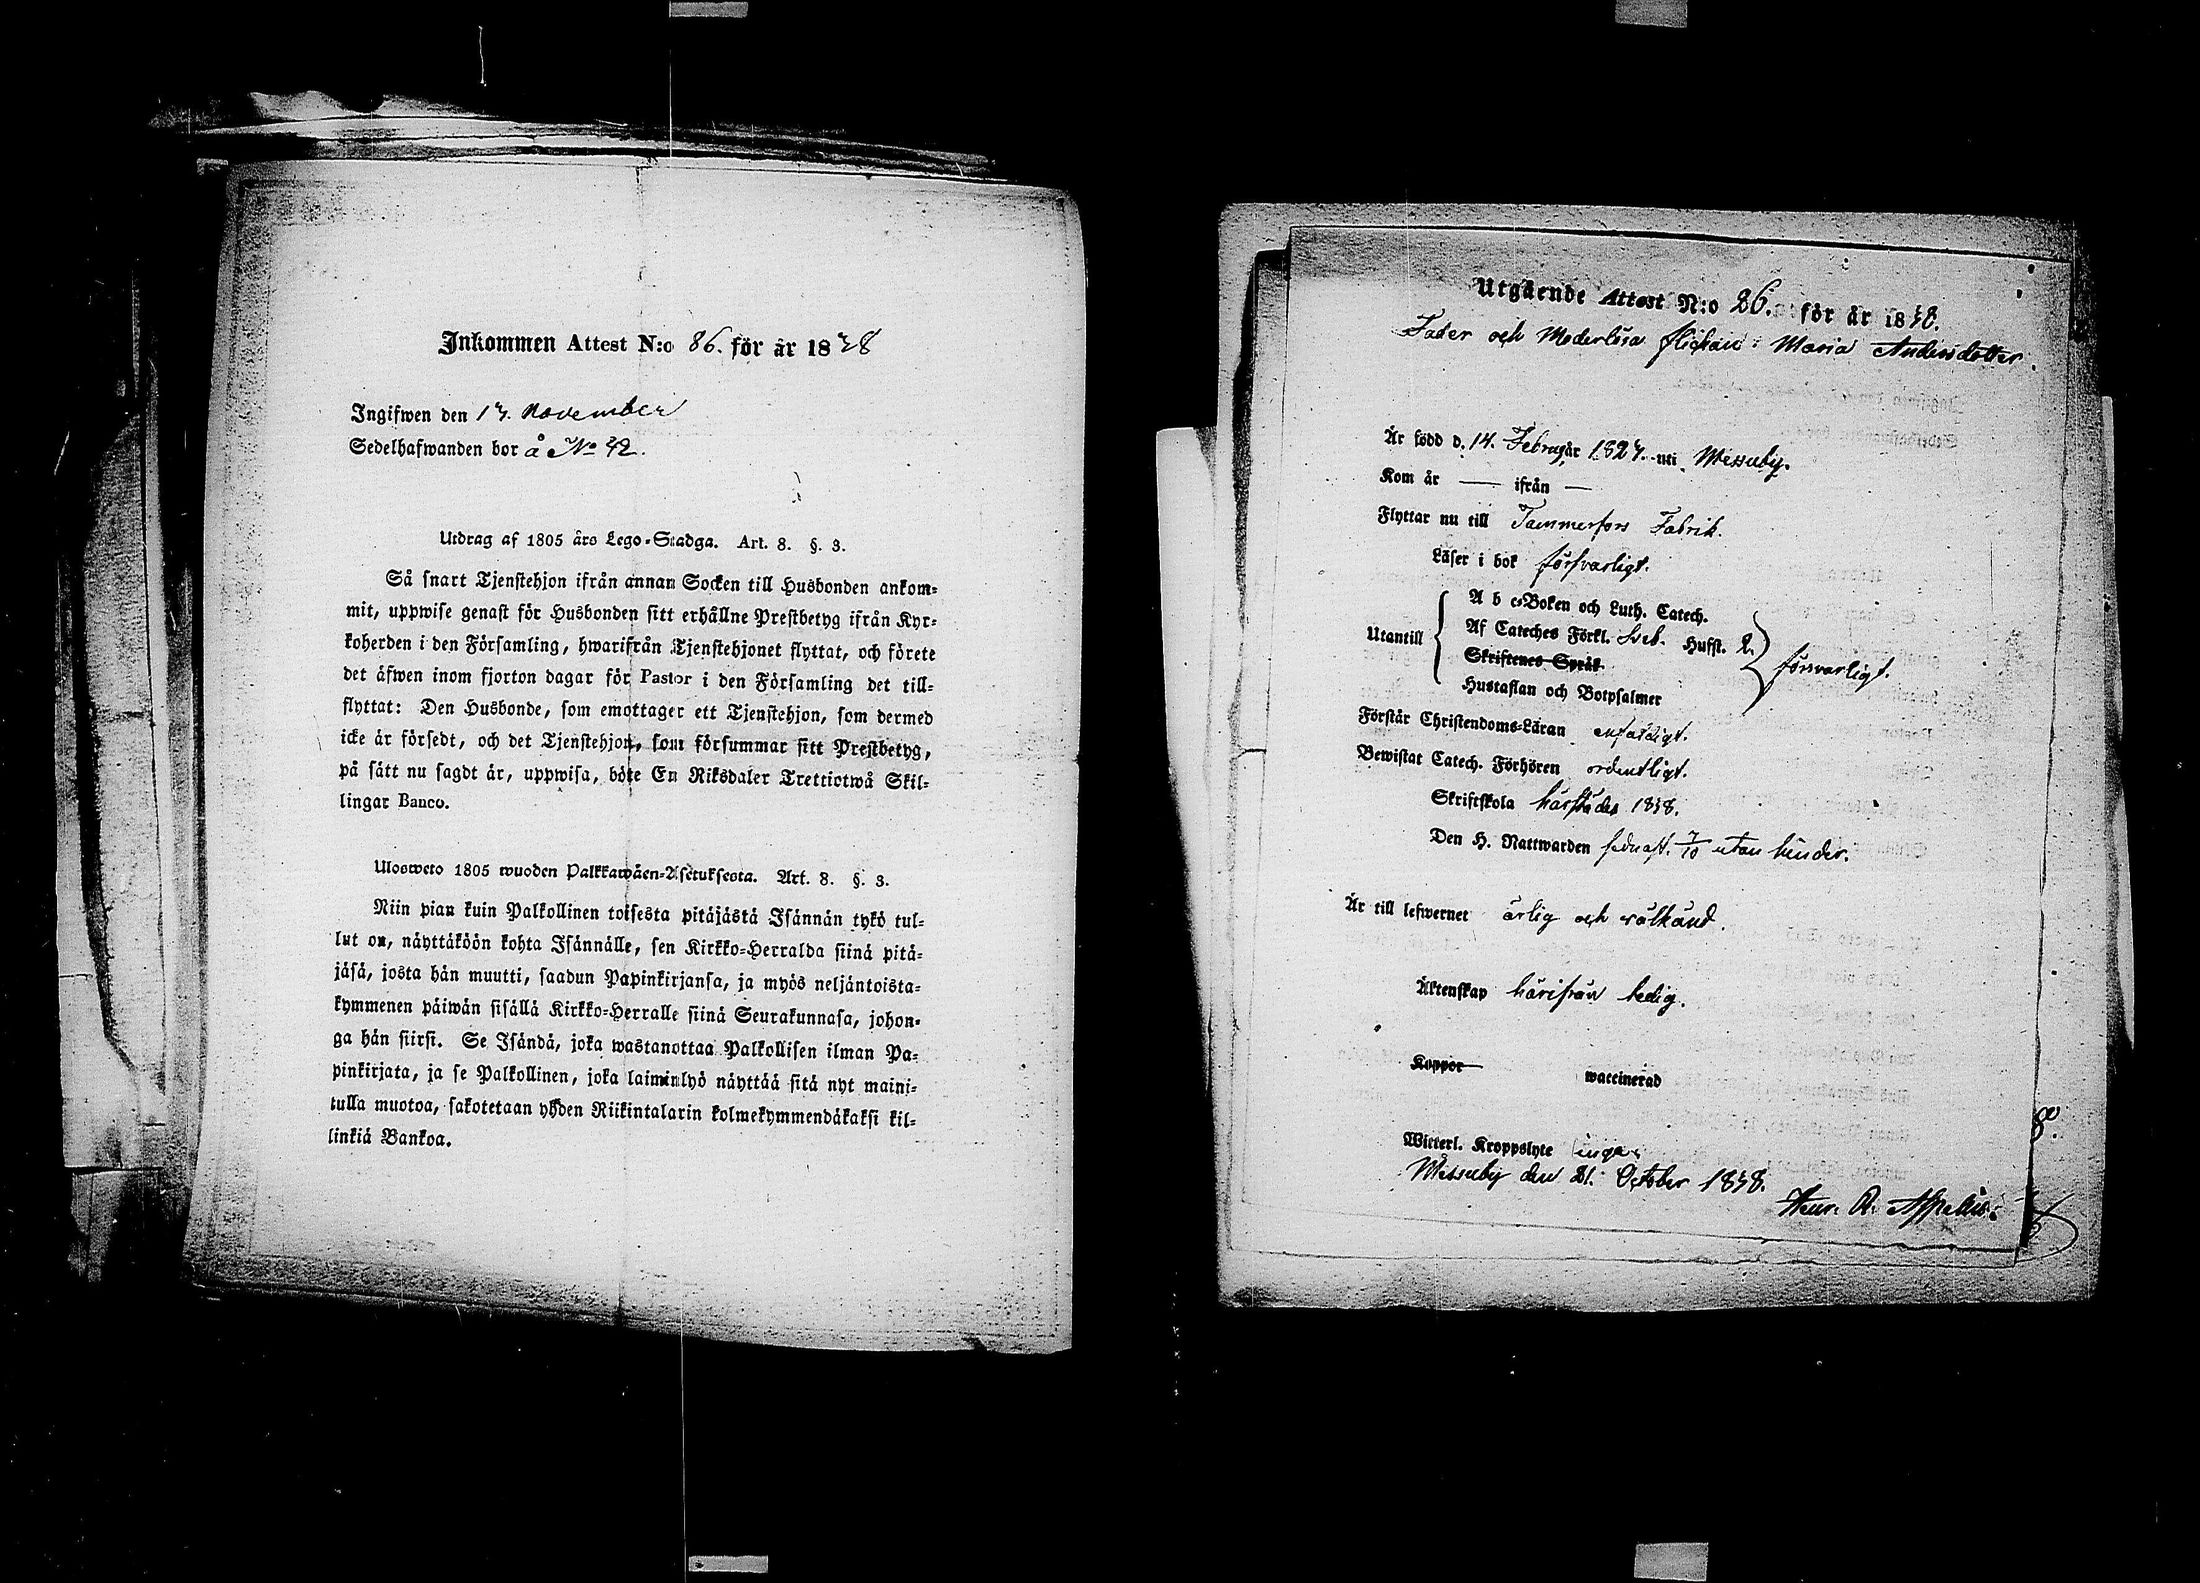 Inkommen Attest N:o 86. för år 1838
Ingifwen den 13. November
Sedelhafwanden bor å No 42.
Utdrag af 1805 års Lego-Stadga. Art. 8. §. 3.
Så snart Tjenstehjon ifrån annan Socken till Husbonden ankom-
mit, uppwise genast för Husbonden sitt erhållne Prestbetyg ifrån Kyr-
koherden i den Församling, hwarifrån Tjenstehjonet flyttat, och förete
det äfwen inom fjorton dagar för Pastor i den Församling det till-
flyttat: Den Husbonde, som emottager ett Tjenstehjon, som dermed
icke är försedt, och det Tjenstehjon, som försummar sitt Prestbetyg,
på sätt nu sagdt är, uppwisa, böte En Riksdaler Trettiotwå Skil-
lingar Banco.
Ulosweto 1805 wuoden Palkkawäen-Asetuksesta. Art. 8. §. 3.
Niin pian kuin Palkollinen toisesta pitäjästä Isännän tykö tul-
lut on, näyttäköön kohta Isännälle, sen Kirkko-Herralda siinä pitä-
jäsä, josta hän muutti, saadun Papinkirjansa, ja myös neljäntoista-
kymmenen päiwän sisällä Kirkko-Herralle siinä Seurakunnasa, johon-
ga hän siirsi. Se Isändä, joka wastanottaa Palkollisen ilman Pa-
pinkirjata, ja se Palkollinen, joka laiminlyö näyttää sitä nyt maini-
tulla muotoa, sakotetaan yhden Riikintalarin kolmekymmendäkaksi kil-
linkiä Bankoa.
Utgående Attest N:o 26. för år 1838.
Fader och Moderlösa flickan Maria Andersdotter
Är född d. 14. Febru. år 1823. uti Messuby.
Kom år — ifrån —
Flyttar nu till Tammerfors Fabrik.
Läser i bok försvarligt.
A b c-Boken och Luth. Catech.
Utantill Af Cateches Förkl. Sveb. Hufst. 2. försvarligt.
Skriftenes Språk
Hustaflan och Botpsalmer
Förstår Christendoms-Läran enfaldigt.
Bewistat Catech. Förhören ordentligt.
Skriftskola härstädes 1838.
Den H. Nattwarden sednast. 7/10 utan hinder.
Är till lefwernet ärlig och välkänd.
Äktenskap härifrån ledig.
Koppor waccinerad
Witterl. Kroppslyte inga
Messuby den 21. October 1838.
Henr. R. Appelius